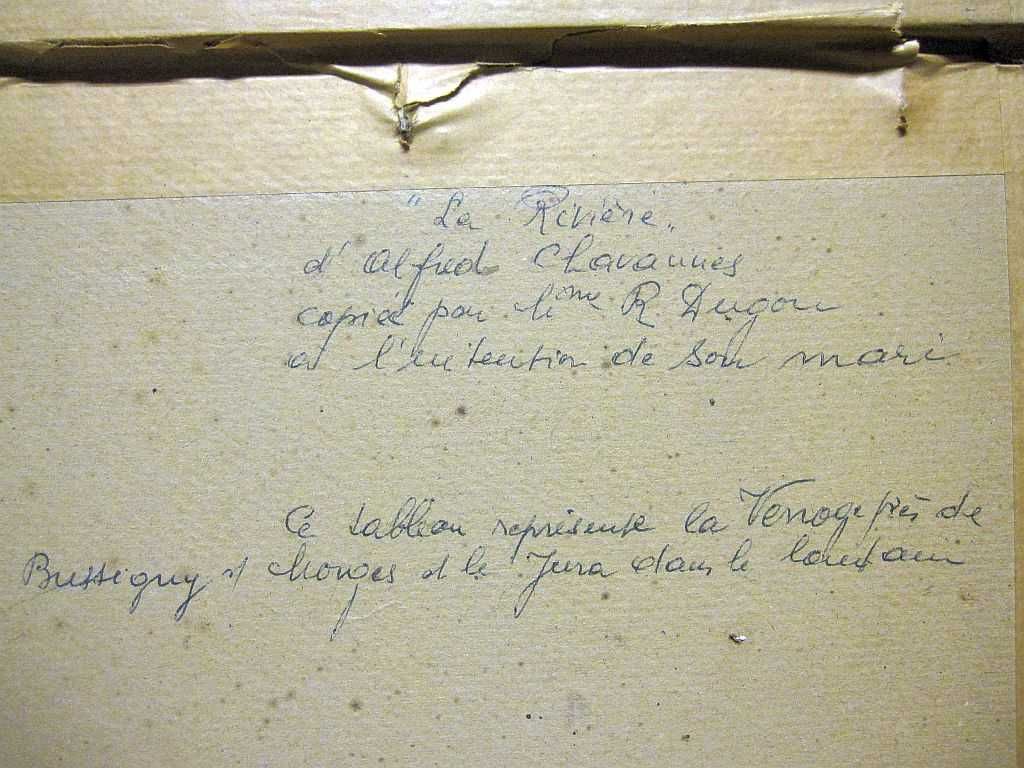 "La Rivière"
d'Alfred Chavannes
copiée par Mme R. Dugon
à l'intention de son mari
Ce tableau représente la Venoge près de
Bussigny et Morges et le Jura dans le lointain